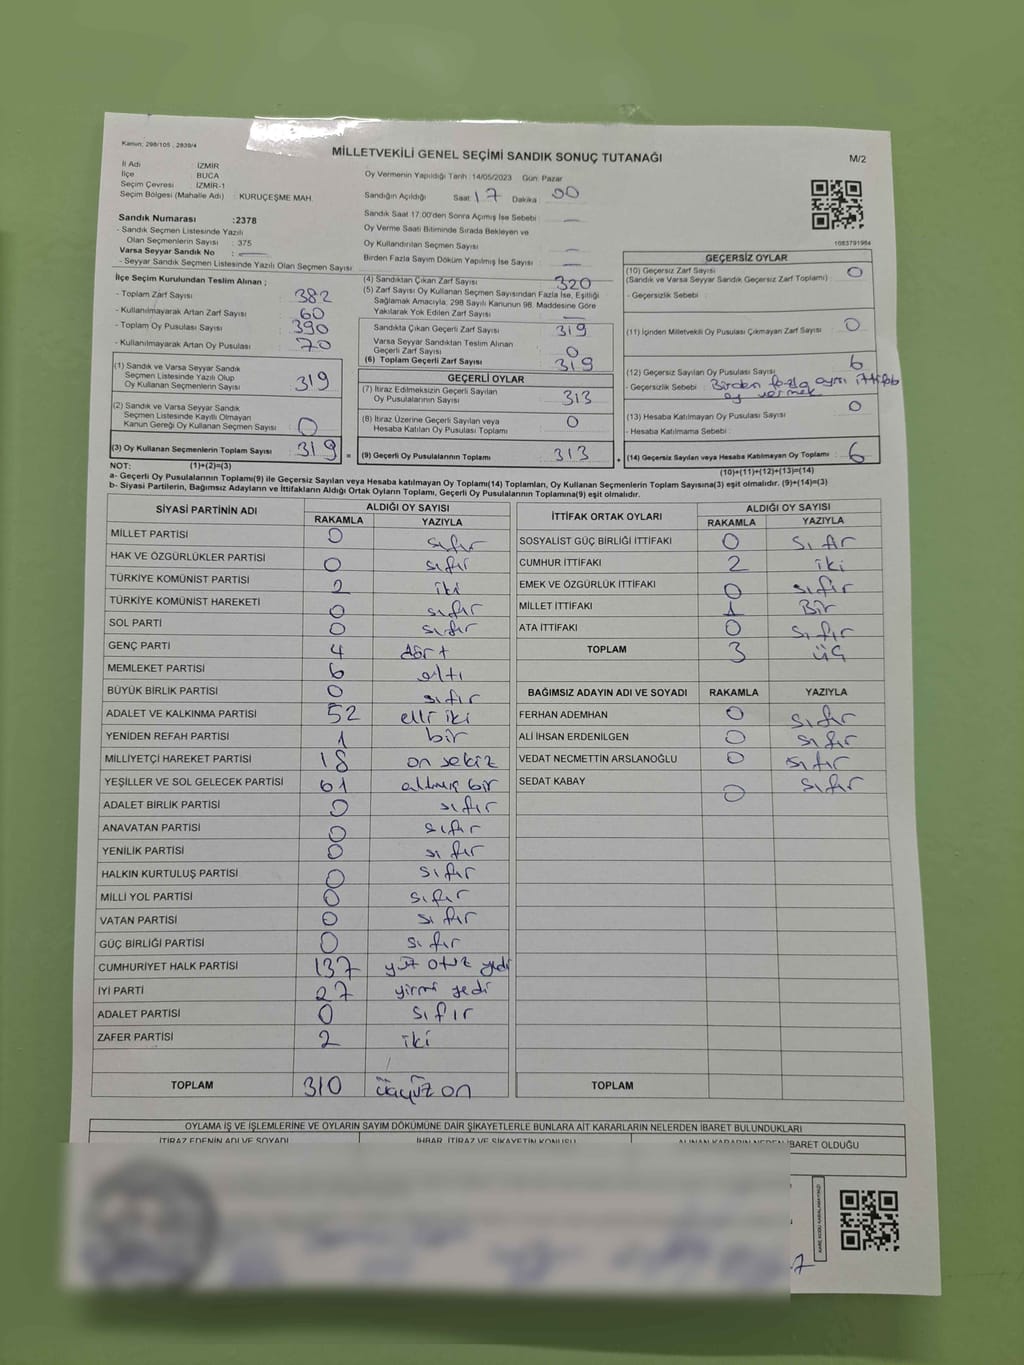 Kanun; 298/105 , 2839/4
MİLLETVEKİLİ GENEL SEÇİMİ SANDIK SONUÇ TUTANAĞI
M/2
İl Adı : İZMİR
İlçe : BUCA
Seçim Çevresi : İZMİR-1
Seçim Bölgesi (Mahalle Adı) : KURUÇEŞME MAH.
Sandık Numarası :2378
- Sandık Seçmen Listesinde Yazılı
Olan Seçmenlerin Sayısı : 375
Varsa Seyyar Sandık No :
- Seyyar Sandık Seçmen Listesinde Yazılı Olan Seçmen Sayısı
Oy Vermenin Yapıldığı Tarih :14/05/2023 Gün: Pazar
Sandığın Açıldığı Saat 17 Dakika : 00
Sandık Saat 17:00'den Sonra Açımış İse Sebebi : —
Oy Verme Saati Bitiminde Sırada Bekleyen ve
Oy Kullandırılan Seçmen Sayısı : —
Birden Fazla Sayım Döküm Yapılmış İse Sayısı : —
1083791984
İlçe Seçim Kurulundan Teslim Alınan ;
- Toplam Zarf Sayısı : 382
- Kullanılmayarak Artan Zarf Sayısı : 60
- Toplam Oy Pusulası Sayısı : 390
- Kullanılmayarak Artan Oy Pusulası : 70
(1) Sandık ve Varsa Seyyar Sandık
Seçmen Listesinde Yazılı Olup
Oy Kullanan Seçmenlerin Sayısı : 319
(2) Sandık ve Varsa Seyyar Sandık
Seçmen Listesinde Kayıtlı Olmayan
Kanun Gereği Oy Kullanan Seçmen Sayısı : 0
(3) Oy Kullanan Seçmenlerin Toplam Sayısı : 319 =
(4) Sandıktan Çıkan Zarf Sayısı : 320
(5) Zarf Sayısı Oy Kullanan Seçmen Sayısından Fazla İse, Eşitliği
Sağlamak Amacıyla, 298 Sayılı Kanunun 98. Maddesine Göre
Yakılarak Yok Edilen Zarf Sayısı : —
Sandıkta Çıkan Geçerli Zarf Sayısı : 319
Varsa Seyyar Sandıktan Teslim Alınan
Geçerli Zarf Sayısı : 0
(6) Toplam Geçerli Zarf Sayısı : 319
GEÇERLİ OYLAR
(7) İtiraz Edilmeksizin Geçerli Sayılan
Oy Pusulalarının Sayısı : 313
(8) İtiraz Üzerine Geçerli Sayılan veya
Hesaba Katılan Oy Pusulası Toplamı : 0
(9) Geçerli Oy Pusulalarının Toplamı : 313 +
GEÇERSİZ OYLAR
(10) Geçersiz Zarf Sayısı
(Sandık ve Varsa Seyyar Sandık Geçersiz Zarf Toplamı) : 0
- Geçersizlik Sebebi :
(11) İçinden Milletvekili Oy Pusulası Çıkmayan Zarf Sayısı : 0
(12) Geçersiz Sayılan Oy Pusulası Sayısı : 6
- Geçersizlik Sebebi : Birden fazla ayrı ittifak
oy vermek
(13) Hesaba Katılmayan Oy Pusulası Sayısı : 0
- Hesaba Katılmama Sebebi :
(14) Geçersiz Sayılan veya Hesaba Katılmayan Oy Toplamı : 6
NOT: (1)+(2)=(3)
(10)+(11)+(12)+(13)=(14)
a- Geçerli Oy Pusulalarının Toplamı(9) ile Geçersiz Sayılan veya Hesaba katılmayan Oy Toplamı(14) Toplamları, Oy Kullanan Seçmenlerin Toplam Sayısına(3) eşit olmalıdır. (9)+(14)=(3)
b- Siyasi Partilerin, Bağımsız Adayların ve İttifakların Aldığı Ortak Oyların Toplamı, Geçerli Oy Pusulalarının Toplamına(9) eşit olmalıdır.
SİYASİ PARTİNİN ADI ALDIĞI OY SAYISI
RAKAMLA YAZIYLA
MİLLET PARTİSİ 0 sıfır
HAK VE ÖZGÜRLÜKLER PARTİSİ 0 sıfır
TÜRKİYE KOMÜNİST PARTİSİ 2 iki
TÜRKİYE KOMÜNİST HAREKETİ 0 sıfır
SOL PARTİ 0 sıfır
GENÇ PARTİ 4 dört
MEMLEKET PARTİSİ 6 altı
BÜYÜK BİRLİK PARTİSİ 0 sıfır
ADALET VE KALKINMA PARTİSİ 52 elli iki
YENİDEN REFAH PARTİSİ 1 bir
MİLLİYETÇİ HAREKET PARTİSİ 18 on sekiz
YEŞİLLER VE SOL GELECEK PARTİSİ 61 altmış bir
ADALET BİRLİK PARTİSİ 0 sıfır
ANAVATAN PARTİSİ 0 sıfır
YENİLİK PARTİSİ 0 sıfır
HALKIN KURTULUŞ PARTİSİ 0 sıfır
MİLLİ YOL PARTİSİ 0 sıfır
VATAN PARTİSİ 0 sıfır
GÜÇ BİRLİĞİ PARTİSİ 0 sıfır
CUMHURİYET HALK PARTİSİ 137 yüz otuz yedi
İYİ PARTİ 27 yirmi yedi
ADALET PARTİSİ 0 sıfır
ZAFER PARTİSİ 2 iki
TOPLAM 310 üçyüz on
İTTİFAK ORTAK OYLARI ALDIĞI OY SAYISI
RAKAMLA YAZIYLA
SOSYALİST GÜÇ BİRLİĞİ İTTİFAKI 0 sıfır
CUMHUR İTTİFAKI 2 iki
EMEK VE ÖZGÜRLÜK İTTİFAKI 0 sıfır
MİLLET İTTİFAKI 1 Bir
ATA İTTİFAKI 0 sıfır
TOPLAM 3 üç
BAĞIMSIZ ADAYIN ADI VE SOYADI RAKAMLA YAZIYLA
FERHAN ADEMHAN 0 sıfır
ALİ İHSAN ERDENİLGEN 0 sıfır
VEDAT NECMETTİN ARSLANOĞLU 0 sıfır
SEDAT KABAY 0 sıfır
TOPLAM
OYLAMA İŞ VE İŞLEMLERİNE VE OYLARIN SAYIM DÖKÜMÜNE DAİR ŞİKAYETLERLE BUNLARA AİT KARARLARIN NELERDEN İBARET BULUNDUKLARI
İTİRAZ EDENİN ADI VE SOYADI İHBAR, İTİRAZ VE ŞİKAYETİN KONUSU ALINAN KARARIN NEDEN İBARET OLDUĞU